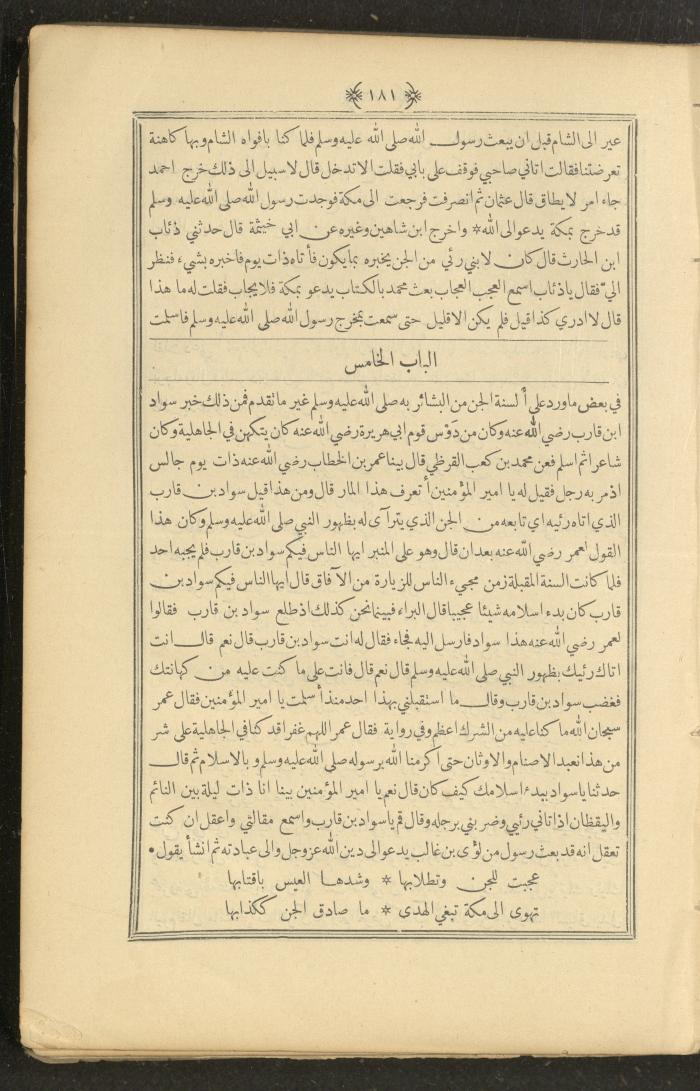 ١٨١
عير الى الشام قبل ان يبعث رسول الله صلى الله عليه وسلم فلما كنا بافواه الشام وبها كاهنة
تعرضتنا فقالت اتاني صاحبي فوقف على بابي فقلت الا تدخل قال لا سبيل الى ذلك خرج احمد
جاء امر لا يطاق قال عثمان ثم انصرفت فرجعت الى مكة فوجدت رسول الله صلى الله عليه وسلم
قد خرج بمكة يدعو الى الله * واخرج ابن شاهين وغيره عن ابي خيثمة قال حدثني ذئاب
ابن الحارث قال كان لابني رئي من الجن يخبره بما يكون فأتاه ذات يوم فاخبره بشيء فنظر
اليّ فقال يا ذئاب اسمع العجب العجاب بعث محمد بالكتاب يدعو بمكة فلا يجاب فقلت له ما هذا
قال لا ادري كذا قيل فلم يكن الا قليل حتى سمعت بمخرج رسول الله صلى الله عليه وسلم فاسلمت
الباب الخامس
في بعض ما ورد على ألسنة الجن من البشائر به صلى الله عليه وسلم غير ما تقدم فمن ذلك خبر سواد
ابن قارب رضي الله عنه وكان من دَوْس قوم ابي هريرة رضي الله عنه كان يتكهن في الجاهلية وكان
شاعرا ثم اسلم فعن محمد بن كعب القرظي قال بينا عمر بن الخطاب رضي الله عنه ذات يوم جالس
اذ مر به رجل فقيل له يا امير المؤمنين أتعرف هذا المار قال ومن هذا قيل سواد بن قارب
الذي اتاه رئيه اي تابعه من الجن الذي يترآى له بظهور النبي صلى الله عليه وسلم وكان هذا
القول لعمر رضي الله عنه بعد ان قال وهو على المنبر ايها الناس فيكم سواد بن قارب فلم يجبه احد
فلما كانت السنة المقبلة زمن مجيء الناس للزيارة من الآفاق قال ايها الناس فيكم سواد بن
قارب كان بدء اسلامه شيئا عجيبا قال البراء فبينما نحن كذلك اذ طلع سواد بن قارب فقالوا
لعمر رضي الله عنه هذا سواد فارسل اليه فجاء فقال له انت سواد بن قارب قال نعم قال انت
اتاك رئيك بظهور النبي صلى الله عليه وسلم قال نعم قال فانت على ما كنت عليه من كهانتك
فغضب سواد بن قارب وقال ما استقبلني بهذا احد منذ أسلمت يا امير المؤمنين فقال عمر
سبحان الله ما كنا عليه من الشرك اعظم وفي رواية فقال عمر اللهم غفرا قد كنا في الجاهلية على شر
من هذا نعبد الاصنام والاوثان حتى اكرمنا الله برسوله صلى الله عليه وسلم و بالاسلام ثم قال
حدثنا يا سواد ببدء اسلامك كيف كان قال نعم يا امير المؤمنين بينا انا ذات ليلة بين النائم
واليقظان اذ اتاني رئيي وضربني برجله وقال قم يا سواد بن قارب واسمع مقالتي واعقل ان كنت
تعقل انه قد بعث رسول من لؤى بن غالب يدعو الى دين الله عز وجل والى عبادته ثم انشأ يقول •
عجبت للجن وتطلابها * وشدها العيس باقتابها
تهوى الى مكة تبغي الهدى * ما صادق الجن ككذابها